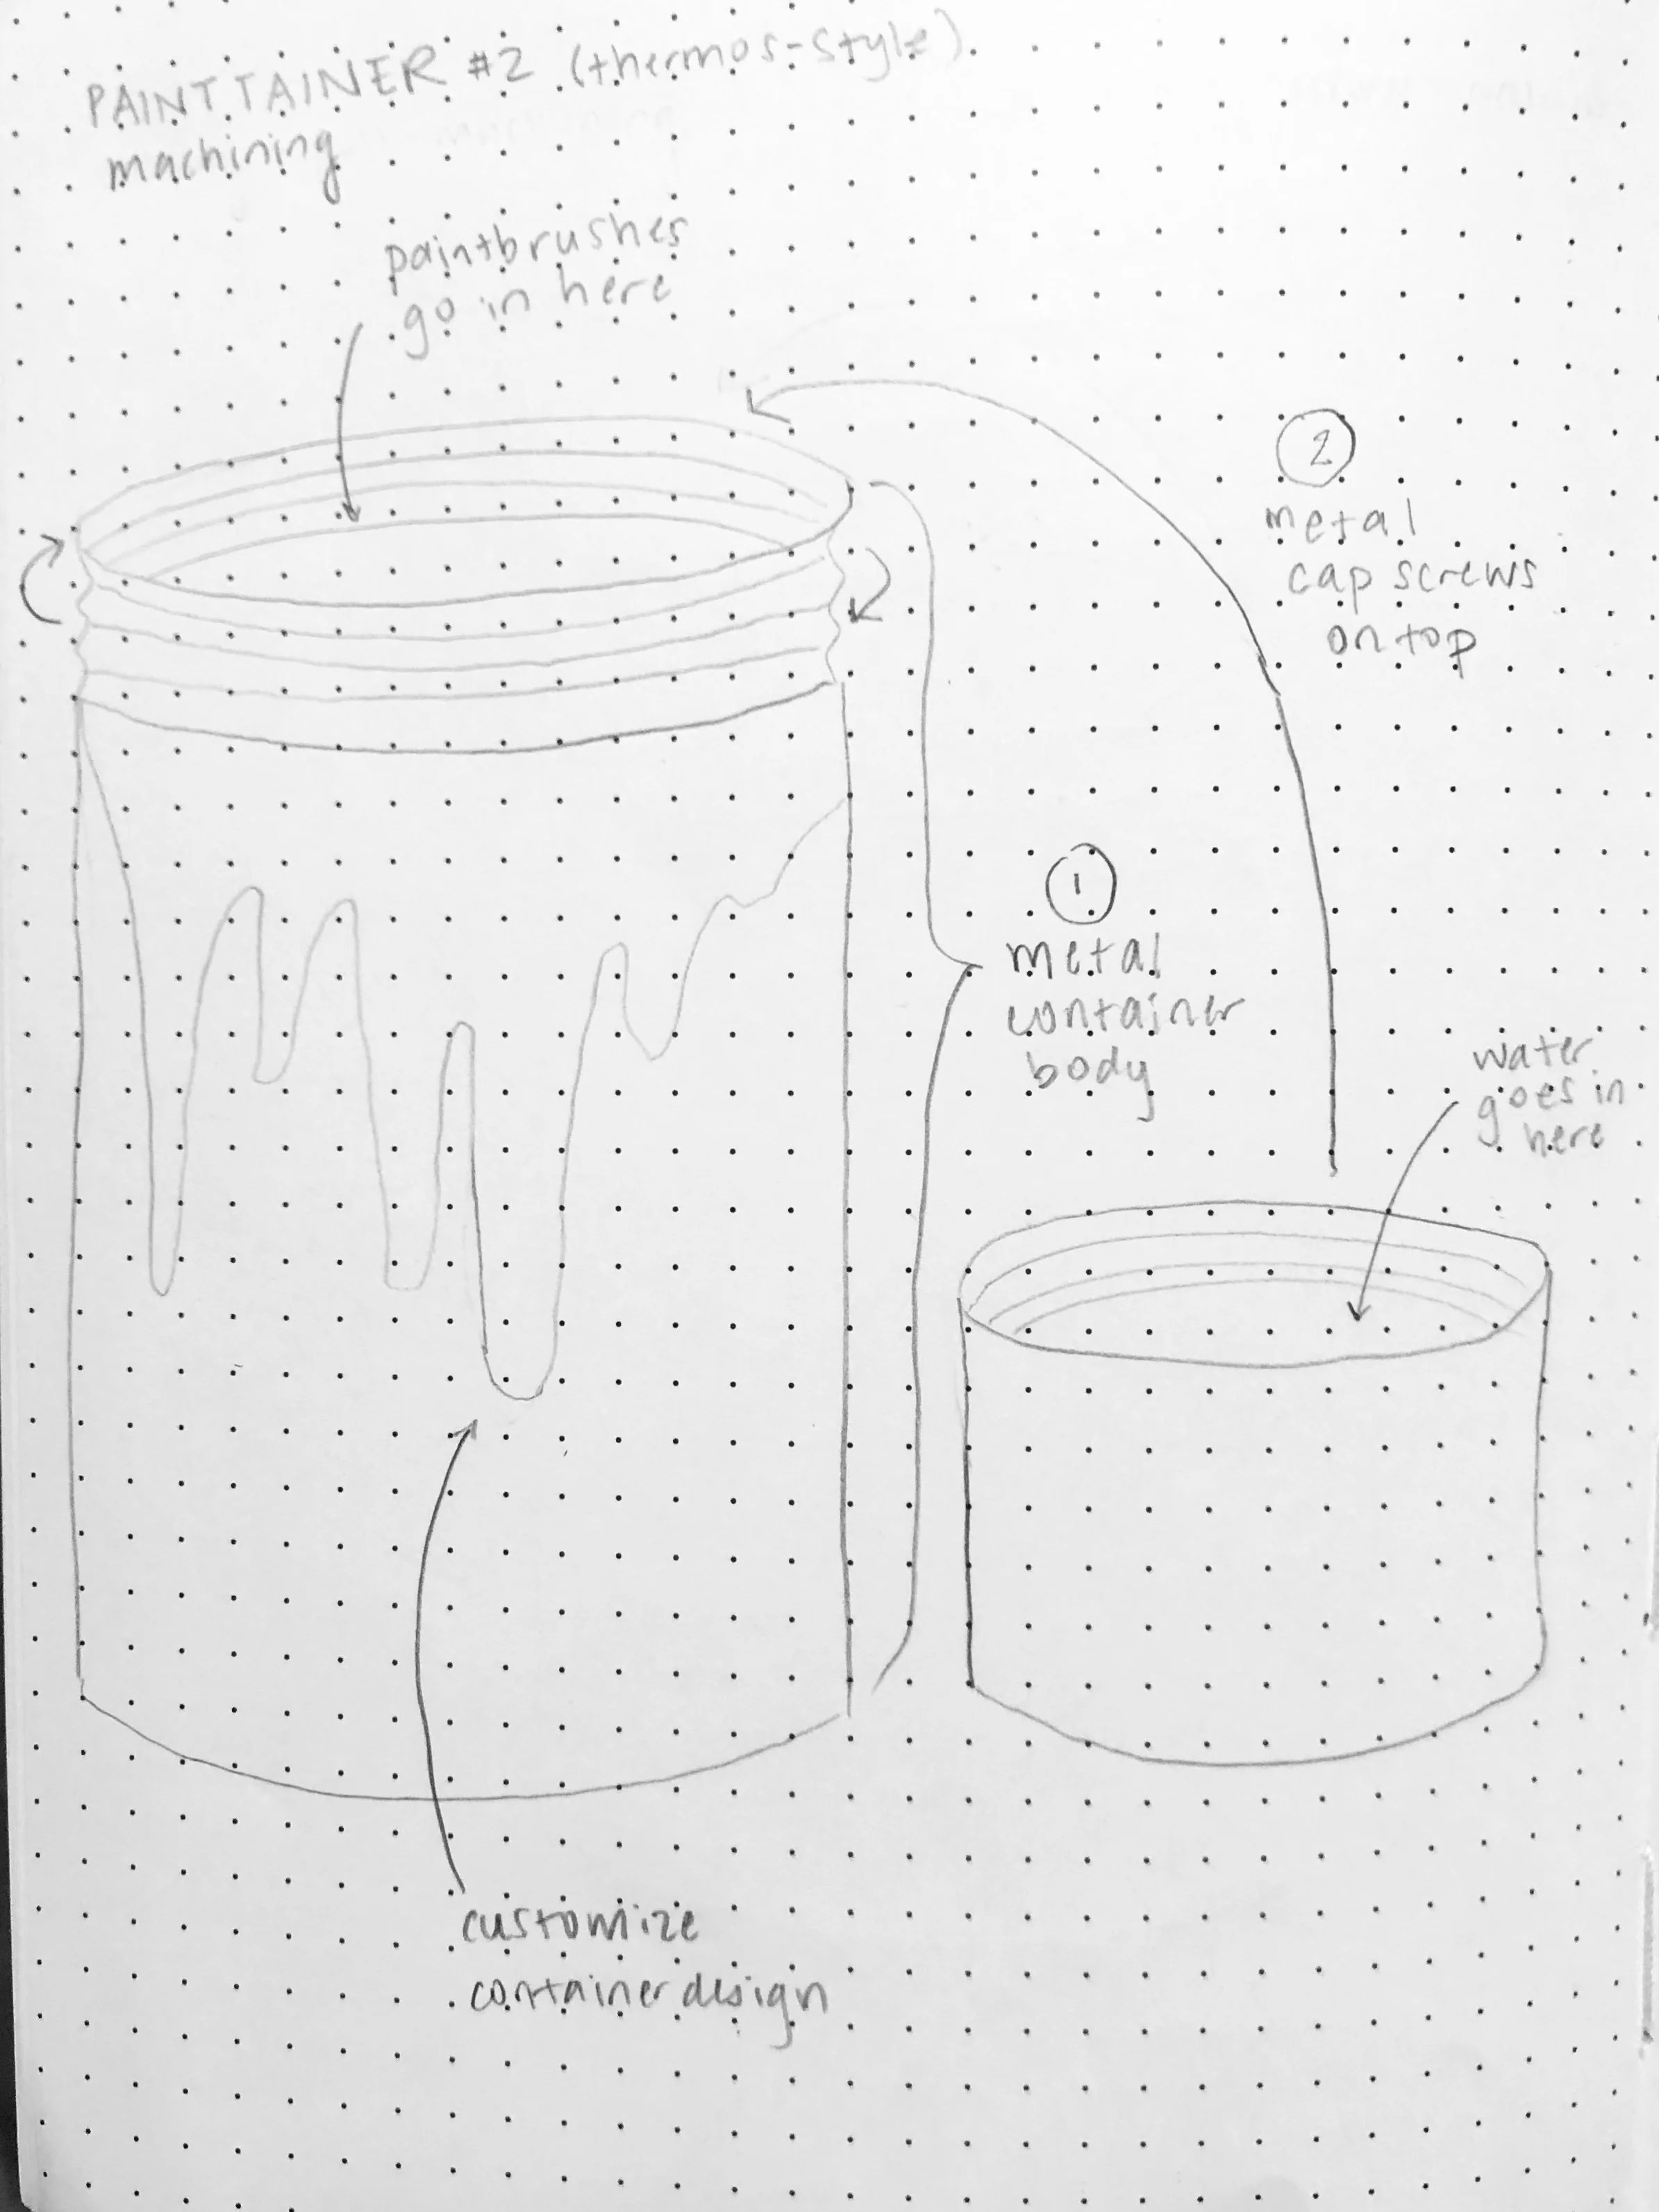 PAINTTAINER #2 (thermos-style)
machining
paintbrushes
go in here
2
metal
cap screws
on top
1
metal
container
body
water
goes in
here
customize
container design